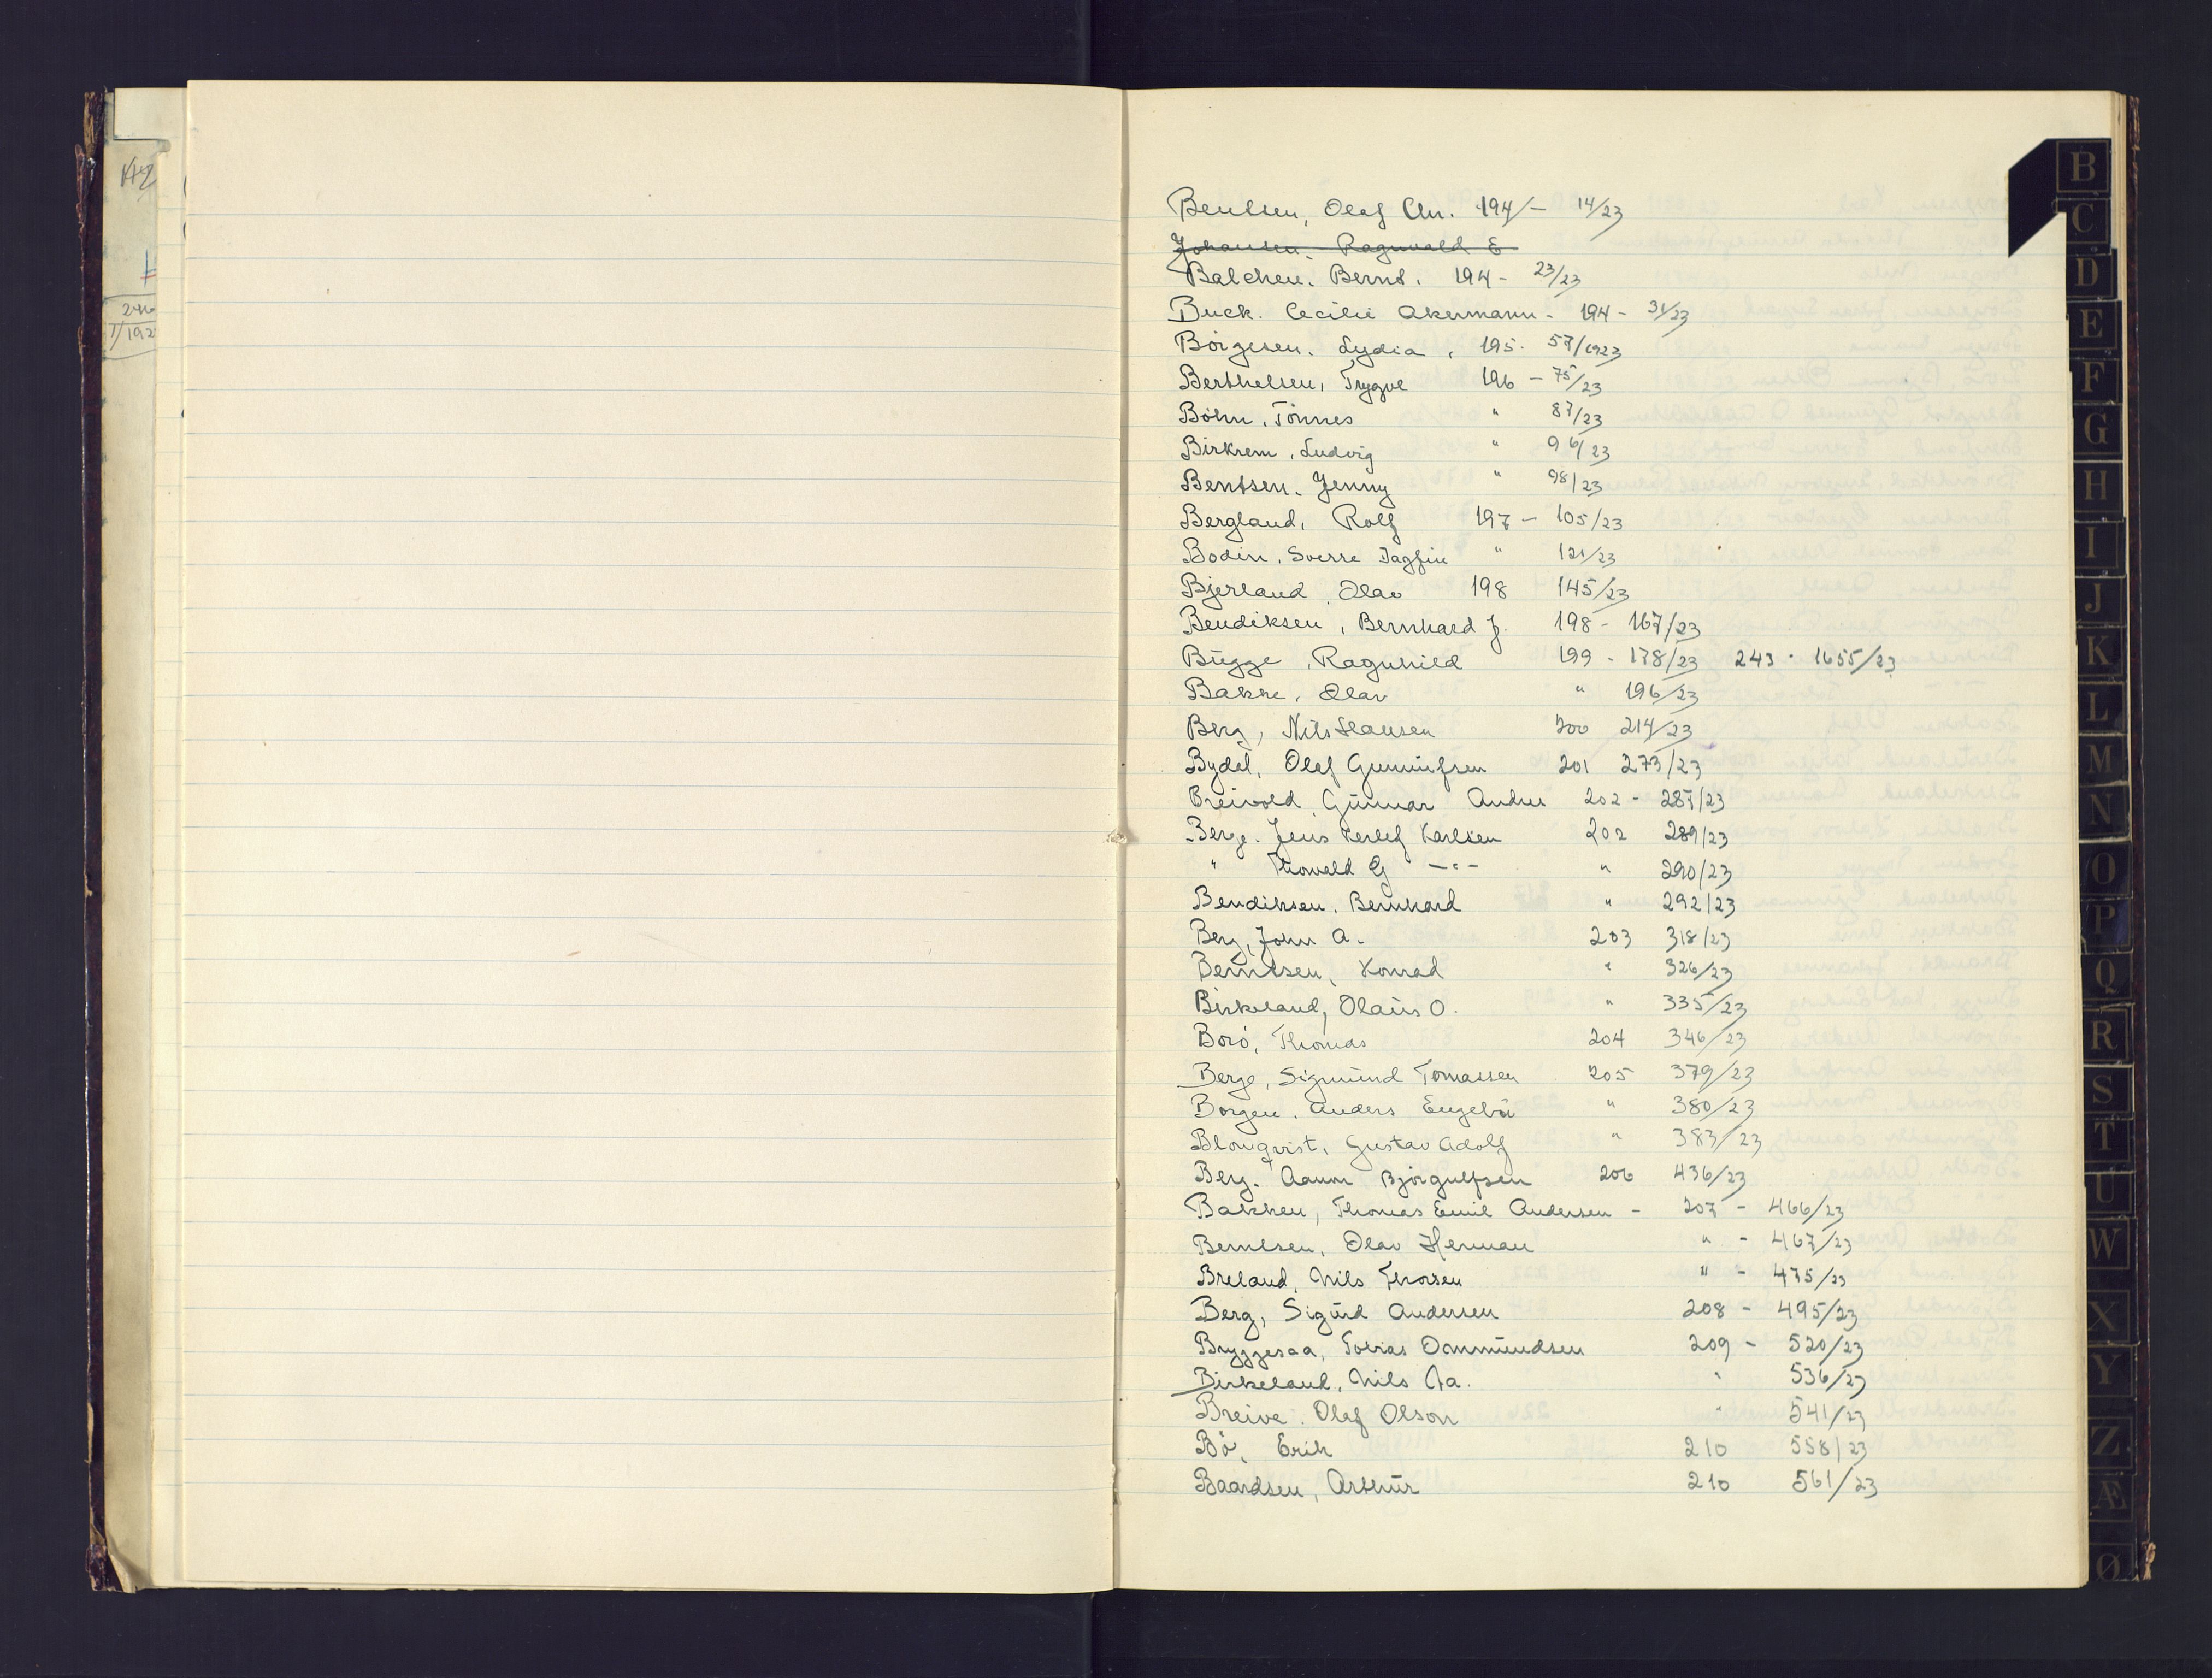 Bentsen, Olaf Chr. 194/- 14/23
Johansen, Ragnvald E
Balchen, Bernt. 194- 23/23
Buck. Cecilie Akermann - 194 - 31/23
Börgesen. Lydia, 195. 57/1923
Berthelsen, Trygve 196 - 75/23
Böhn, Tönnes " 87/23
Birkrem, Ludvig " 96/23
Bentsen. Jenny " 98/23
Bergland, Rolf 197 - 105/23
Bodin, Sverre Dagfin " 121/23
Bjerland, Olav 198 145/23
Bendiksen, Bernhard J. 198 - 167/23
Bugge, Ragnhild 199 - 178/23 243 - 1655/23
Bakke, Olav " 196/23
Berg, Nils Hansen 200 214/23
Bydal, Olaf Gunnufsen 201 273/23
Breivold, Gunnar Andre 202 - 287/23
Berge. Jens Terlef Karlsen 202 289/23
" Thorvald G -"- " 290/23
Bendiksen, Bernhard " 292/23
Berg, John A. 203 318/23
Berntsen, Konrad " 326/23
Birkeland, Olaus O. " 335/23
Borö, Thomas 204 346/23
Berge, Sigmund Tomassen 205 379/23
Borgen, Anders " 380/23
Blonqvist, Gustav Adolf " 383/23
Berg. Aanon Bjorgulfsen 206 436/23
Bakken, Thomas Emil Andersen - 207 - 466/23
Berntsen, Olav Herman " - 467/23
Breland, Nils Thorsen " - 475/23
Berg, Sigurd Andersen 208 - 495/23
Bryggesaa, Tobias Ommundsen 209 - 520/23
Birkeland, Nils Aa. " 536/23
Breive. Olaf Olson " 541/23
Bö, Erik 210 558/23
Baardsen, Arthur 210 561/23
B
C
D
E
F
G
H
I
J
K
L
M
N
O
P
Q
R
S
T
U
W
X
Y
Z
Æ
Ø